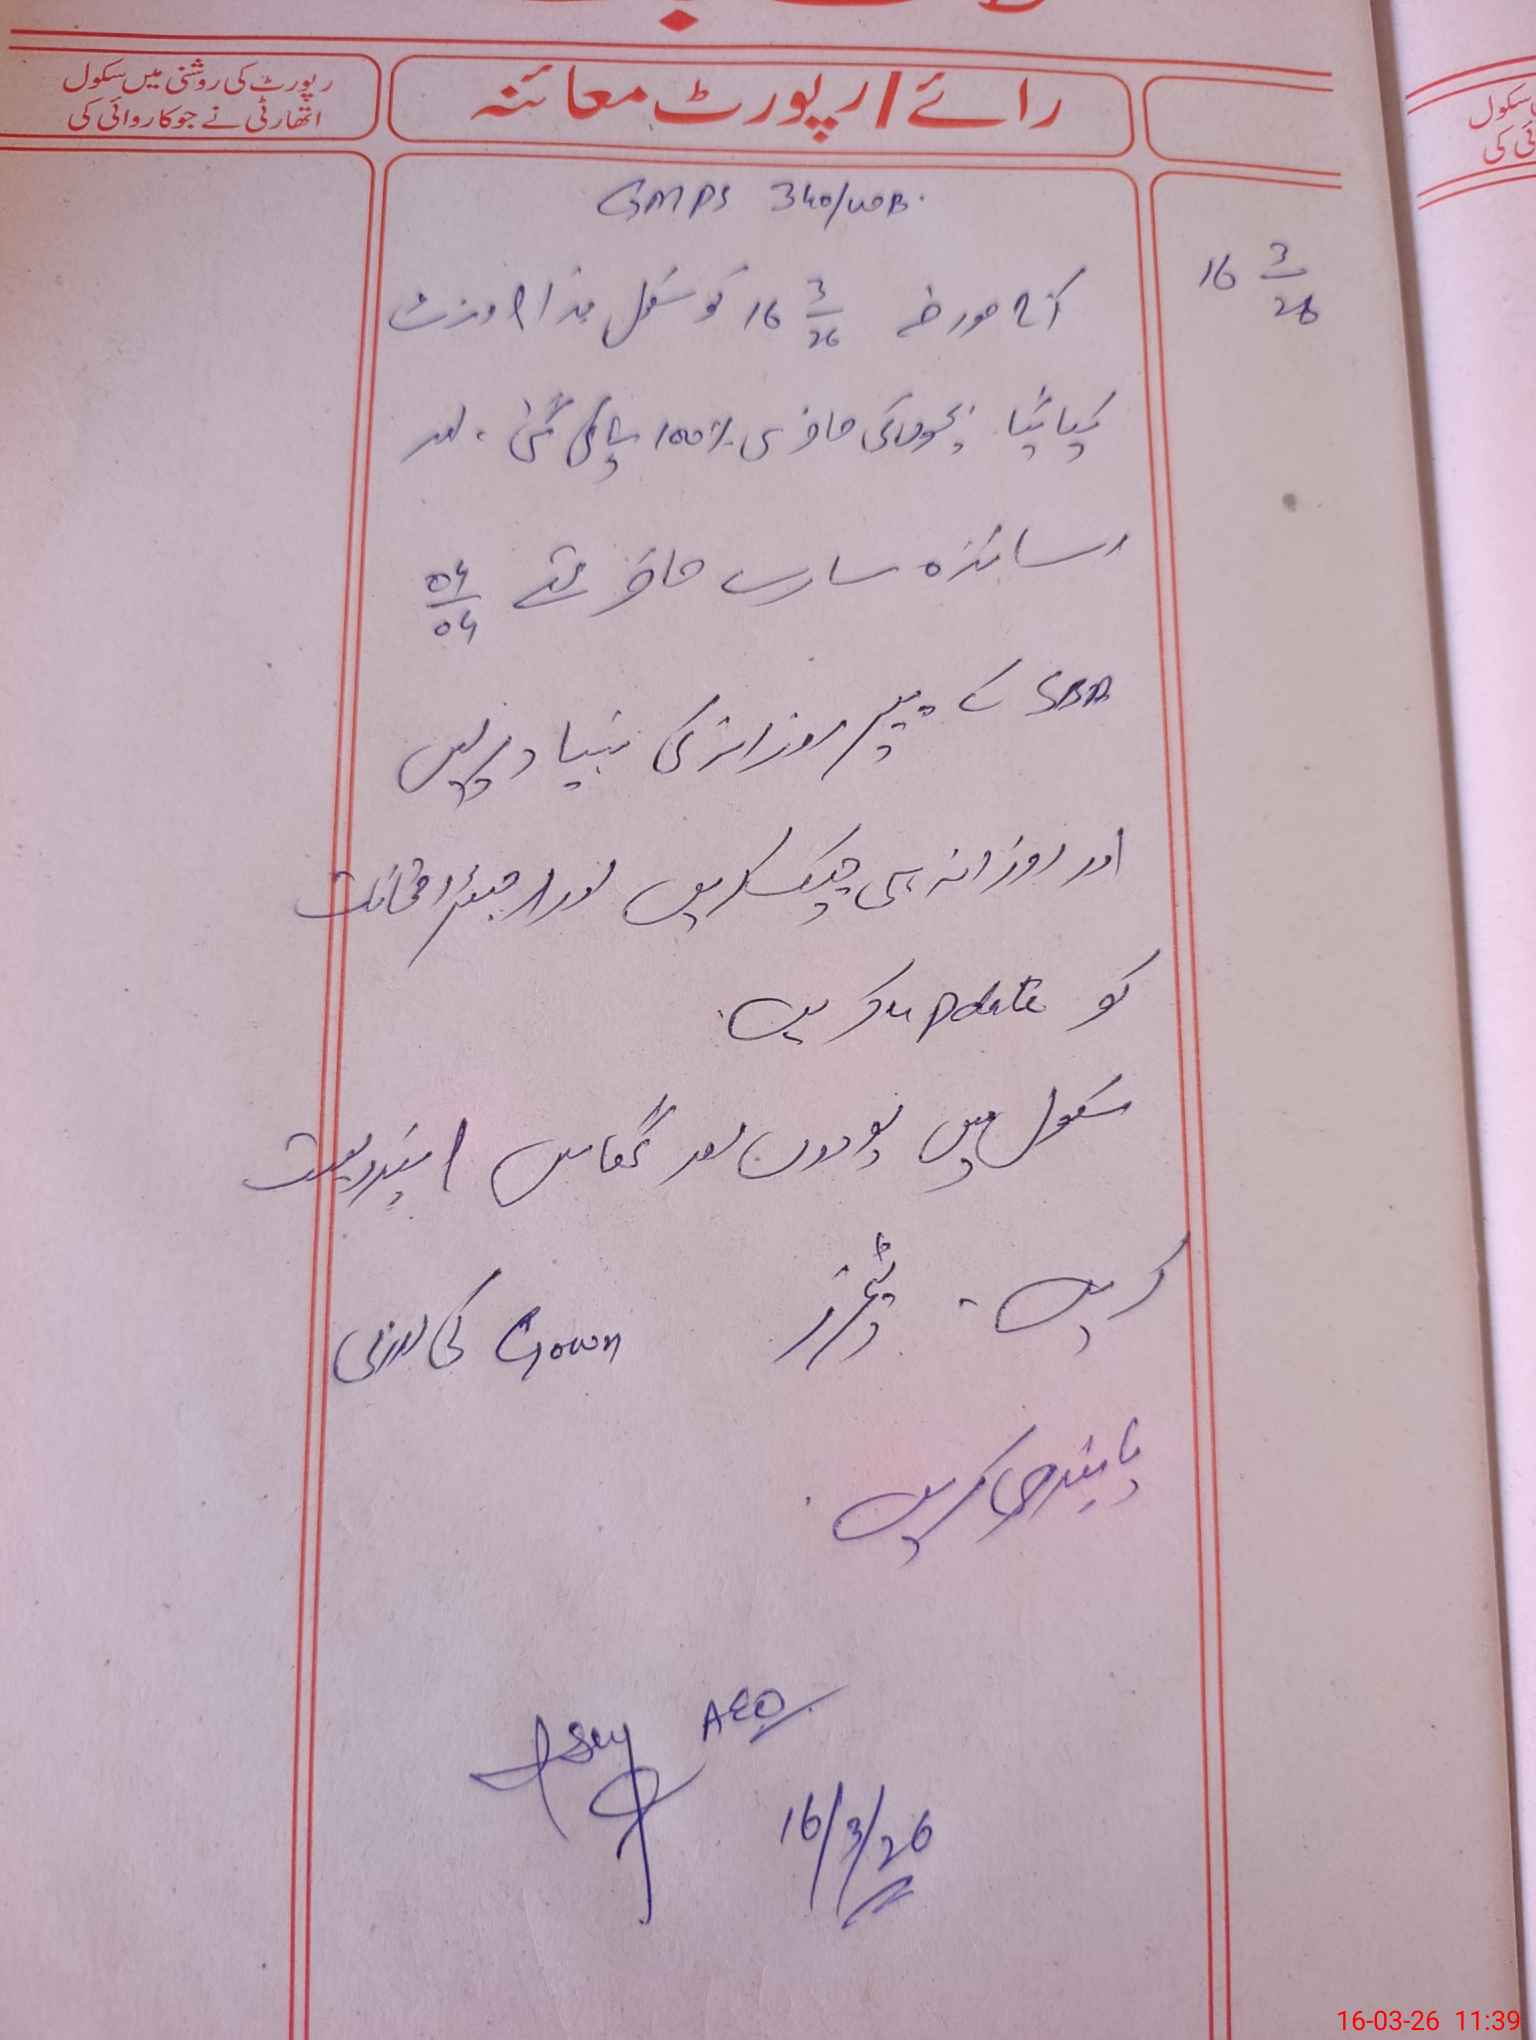 رپورٹ کی روشنی میں سکول
اتھارٹی نے جو کاروائی کی
رائے / رپورٹ معائنہ
GMPS 340/WB.
16 3/26
آج مورخہ 16 3/26 کو سکول ہذا وزٹ
کیا گیا۔ بچوں کی حاضری 100% پائی گئی، اور
اساتذہ سارے حاضر تھے 04/04
SBA کے پیپر روزانہ کی بنیاد پر لیں
اور روزانہ ہی چیک کریں اور
کو update کریں۔
سکول میں پودوں اور گھاس
کریں۔ ٹیچرز Gown کی
پابندی کریں۔
AEO
16/3/26
سکول
ئی کی
16-03-26 11:39